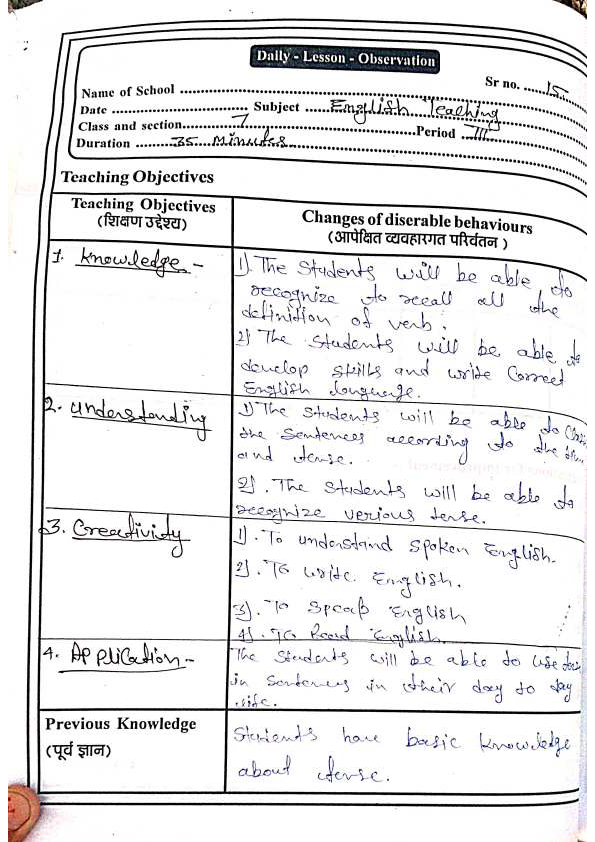 Daily - Lesson - Observation
Sr no. ......15......
Name of School ......
Date ...... Subject ......English Teaching......
Class and section......7......Period ...III...
Duration ......35 Minutes......
Teaching Objectives
Teaching Objectives
(शिक्षण उद्देश्य)
Changes of diserable behaviours
(आपेक्षित व्यवहारगत परिवर्तन )
1. Knowledge -
1). The Students will be able to
recognize to recall all the
definition of verb.
2) The Students will be able to
develop skills and write Correct
English language.
2. Understanding
1) The Students will be able to
the Sentences according to the
and tense.
2). The Students will be able to
recognize verious tense.
3. Creativity
1). To understand Spoken English.
2). To write English.
3). To Speak English
4). To Read English.
4. Application -
The Students will be able to use
in Sentences in their day to day
life.
Previous Knowledge
(पूर्व ज्ञान)
Students have basic knowledge
about tense.